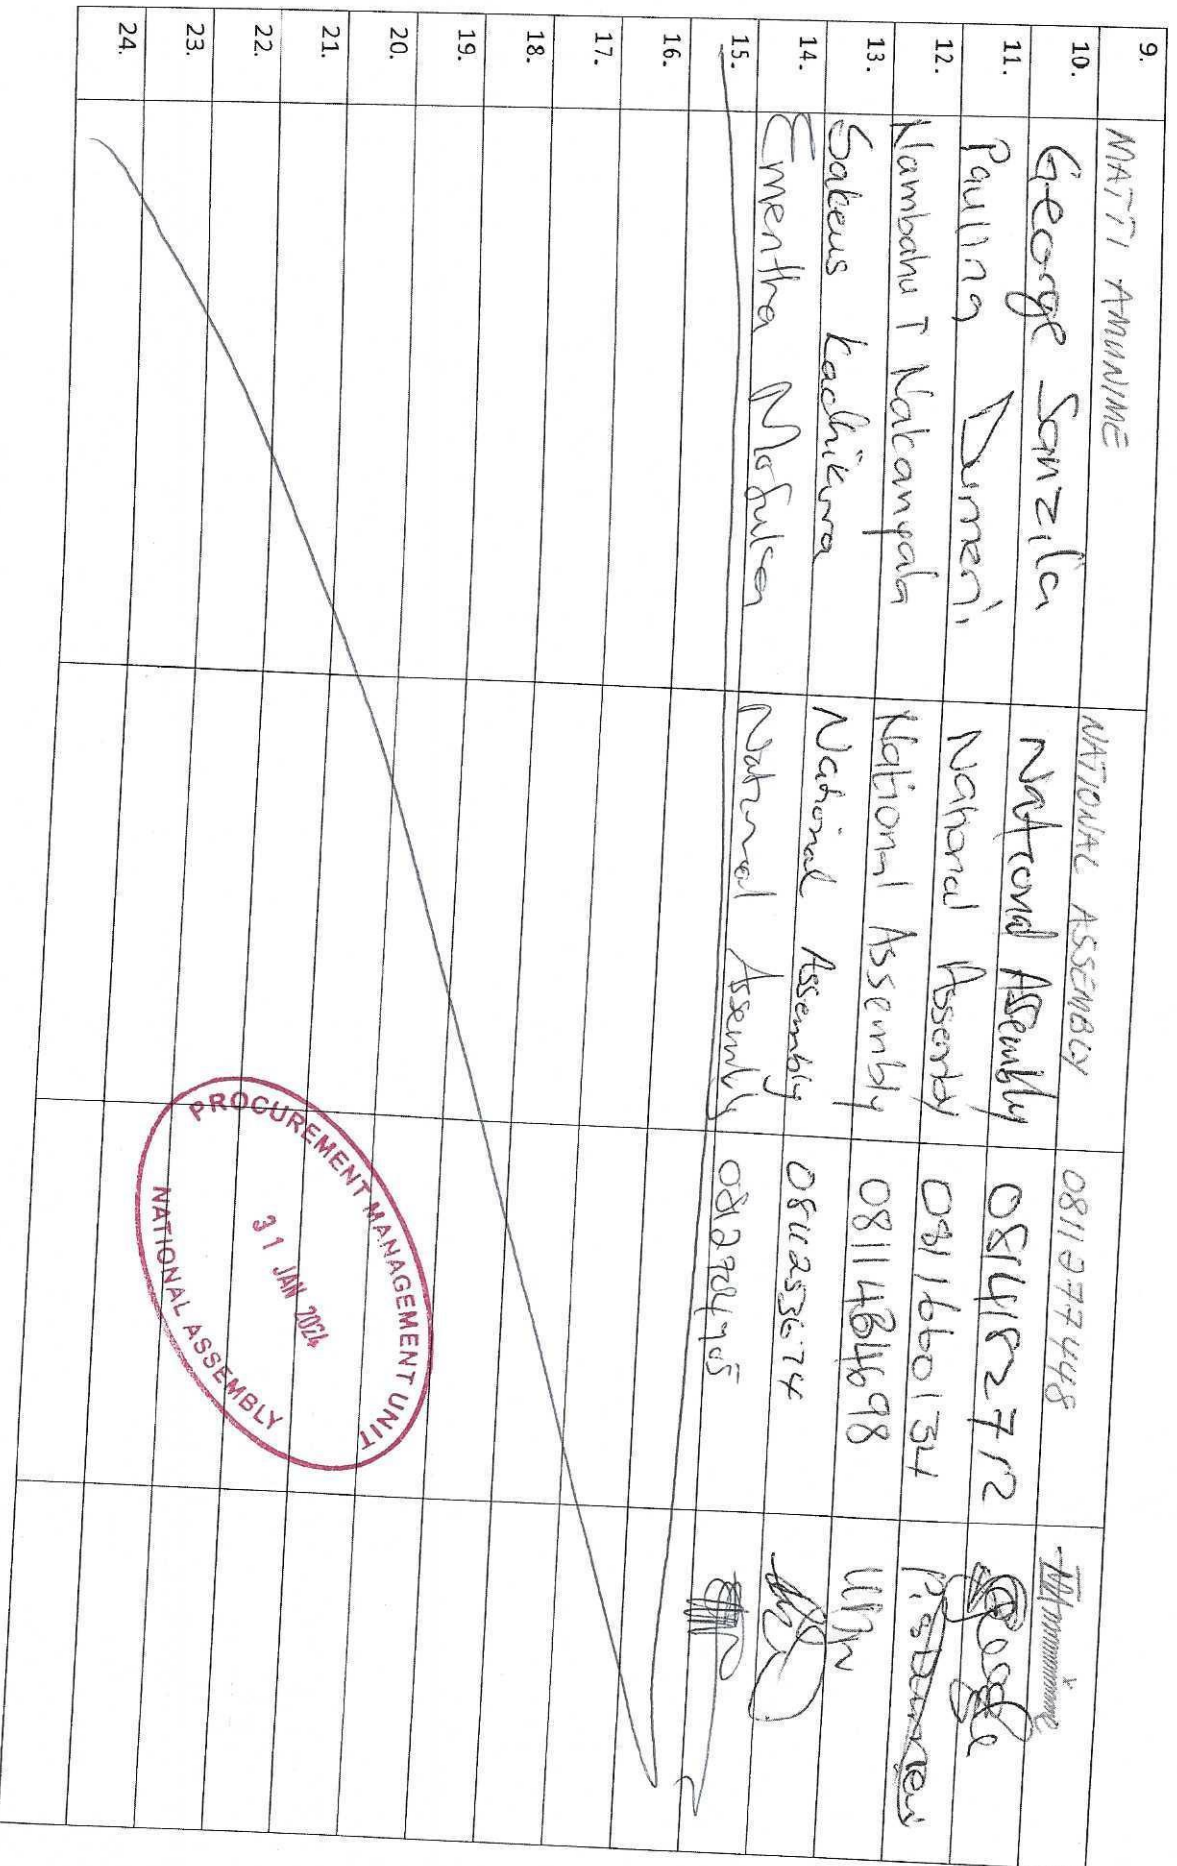 9. MATTI AMUNIME NATIONAL ASSEMBLY 0811277448
10. George Sanzila National Assembly 0814182712
11. Paulina Dumeni National Assembly 0811660134
12. Nambahu T Nakanyala National Assembly 0811484698
13. Sakeus Kadhikwa National Assembly 0811253674
14. Ementha National Assembly
15.
16.
17.
18.
19.
20.
21.
22.
23.
24.
PROCUREMENT MANAGEMENT UNIT
31 JAN 2024
NATIONAL ASSEMBLY